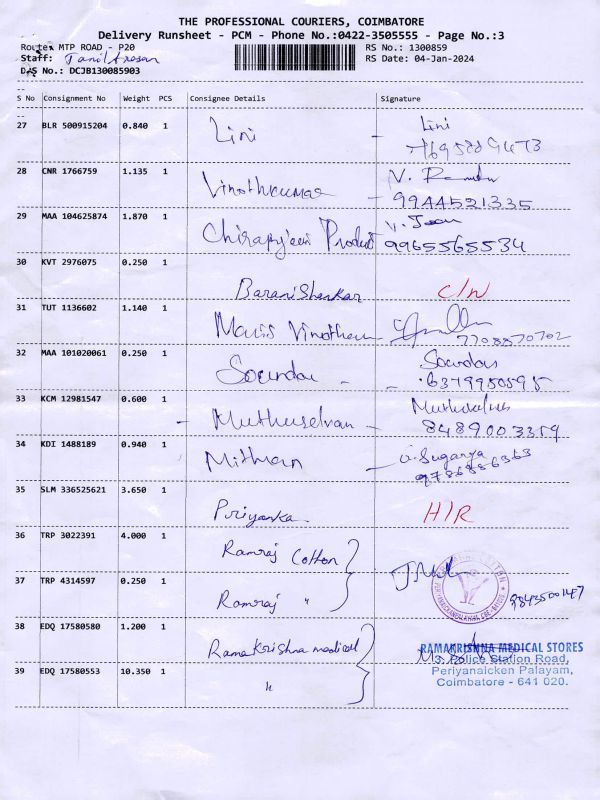 THE PROFESSIONAL COURIERS, COIMBATORE
Delivery Runsheet - PCM - Phone No.:0422-3505555 - Page No.:3
Route: MTP ROAD - P20
RS No.: 1300859
Staff:
RS Date: 04-Jan-2024
D/S No.: DCJB130085903
S No Consignment No Weight PCS Consignee Details Signature
27 BLR 500915204 0.840 1 Lini - Lini
28 CNR 1766759 1.135 1 Vinothkumar
- 9944521335
29 MAA 104625874 1.870 1 Chiranjeevi Product
9965565534
30 KVT 2976075 0.250 1 BaraniShankar C/N
31 TUT 1136602 1.140 1
7708870702
32 MAA 101020061 0.250 1
6379950595
33 KCM 12981547 0.600 1 - Muthuselvan -
8489003359
34 KDI 1488189 0.940 1 Mithran - V. Suganya
9786886363
35 SLM 336525621 3.650 1 Priyanka H/R
36 TRP 3022391 4.000 1 Ramraj Cotton
37 TRP 4314597 0.250 1 Ramraj "
38 EDQ 17580580 1.200 1 Ramakrishna medical
RAMAKRISHNA MEDICAL STORES
3, Police Station Road,
39 EDQ 17580553 10.350 1 "
Periyanaicken Palayam,
Coimbatore - 641 020.